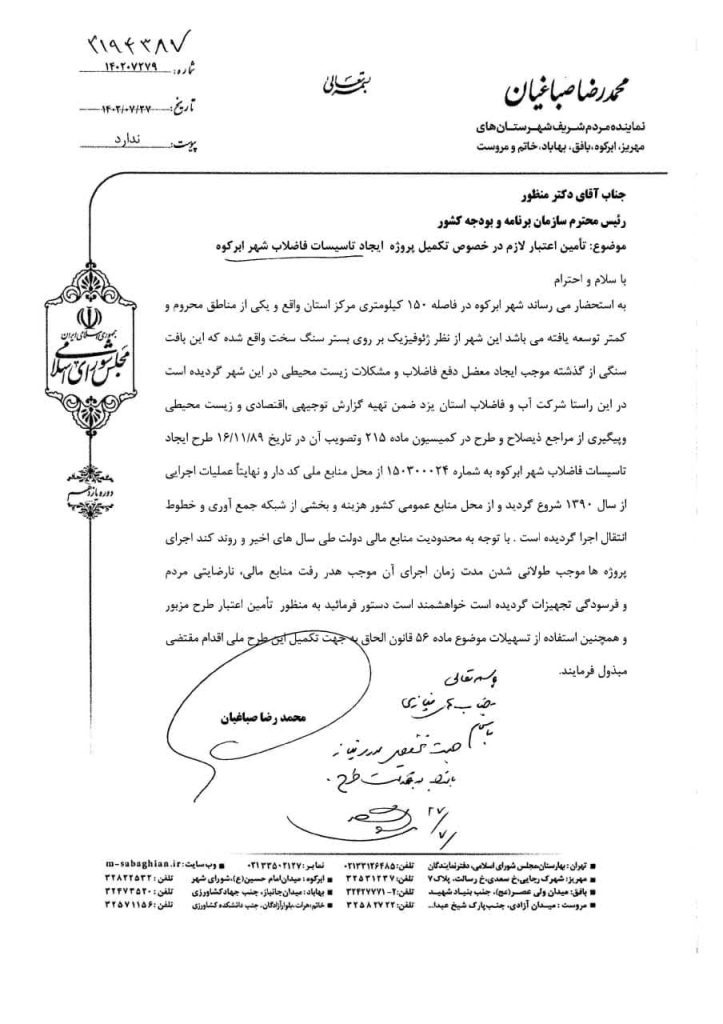 ۳۱۹۴۳۸۷
شماره: ۱۴۰۲۰۷۲۷۹
تاریخ: ۱۴۰۲/۰۷/۲۷
پیوست: ندارد
بسمه تعالی
محمدرضا صباغیان
نماینده مردم شریف شهرستان‌های
مهریز، ابرکوه، بافق، بهاباد، خاتم و مروست
جناب آقای دکتر منظور
رئیس محترم سازمان برنامه و بودجه کشور
موضوع: تأمین اعتبار لازم در خصوص تکمیل پروژه ایجاد تاسیسات فاضلاب شهر ابرکوه
با سلام و احترام
به استحضار می رساند شهر ابرکوه در فاصله ۱۵۰ کیلومتری مرکز استان واقع و یکی از مناطق محروم و
کمتر توسعه یافته می باشد این شهر از نظر ژئوفیزیک بر روی بستر سنگ سخت واقع شده که این بافت
سنگی از گذشته موجب ایجاد معضل دفع فاضلاب و مشکلات زیست محیطی در این شهر گردیده است
در این راستا شرکت آب و فاضلاب استان یزد ضمن تهیه گزارش توجیهی ،اقتصادی و زیست محیطی
وپیگیری از مراجع ذیصلاح و طرح در کمیسیون ماده ۲۱۵ وتصویب آن در تاریخ ۱۶/۱۱/۸۹ طرح ایجاد
تاسیسات فاضلاب شهر ابرکوه به شماره ۱۵۰۳۰۰۰۲۴ از محل منابع ملی کد دار و نهایتاً عملیات اجرایی
از سال ۱۳۹۰ شروع گردید و از محل منابع عمومی کشور هزینه و بخشی از شبکه جمع آوری و خطوط
انتقال اجرا گردیده است . با توجه به محدودیت منابع مالی دولت طی سال های اخیر و روند کند اجرای
پروژه ها موجب طولانی شدن مدت زمان اجرای آن موجب هدر رفت منابع مالی، نارضایتی مردم
و فرسودگی تجهیزات گردیده است خواهشمند است دستور فرمائید به منظور تأمین اعتبار طرح مزبور
و همچنین استفاده از تسهیلات موضوع ماده ۵۶ قانون الحاق به جهت تکمیل این طرح ملی اقدام مقتضی
مبذول فرمایند.
محمد رضا صباغیان
باسمه تعالی
طرح
۲۷/۷
جمهوری اسلامی ایران
مجلس شورای اسلامی
دوره یازدهم
تهران: بهارستان،مجلس شورای اسلامی، دفترنمایندگان تلفن: ۰۲۱۳۳۱۲۶۴۸۵ نمابر: ۰۲۱۳۳۵۰۲۱۲۷ وب سایت: m-sabaghian.ir
مهریز: شهرک رجایی،خ سعدی،خ رسالت، پلاک۷ تلفن: ۳۲۵۳۱۲۳۷ ابرکوه: میدان امام حسین(ع)،شورای شهر تلفن: ۳۲۸۲۲۵۳۲
بافق: میدان ولی عصر(عج)، جنب بنیاد شهید تلفن: ۲-۳۲۴۲۷۷۷۱ بهاباد: میدان جانباز، جنب جهادکشاورزی تلفن: ۳۲۴۷۳۵۲۰
مروست: میدان آزادی، جنب پارک شیخ عبدا... تلفن: ۳۲۵۸۲۷۲۲ خاتم:هرات،بلوارآزادگان، جنب دانشکده کشاورزی تلفن: ۳۲۵۷۱۱۵۶